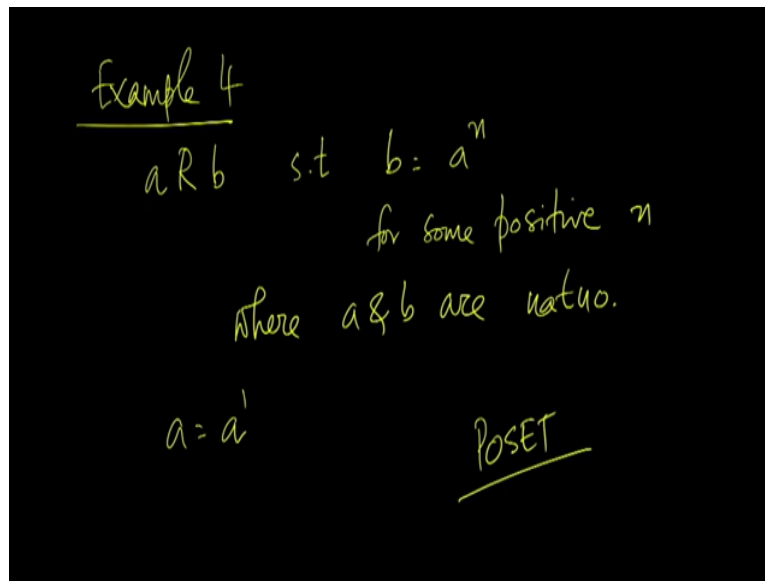 Example 4
a R b s.t b = aⁿ
for some positive n
where a & b are nat no.
a = a¹
POSET